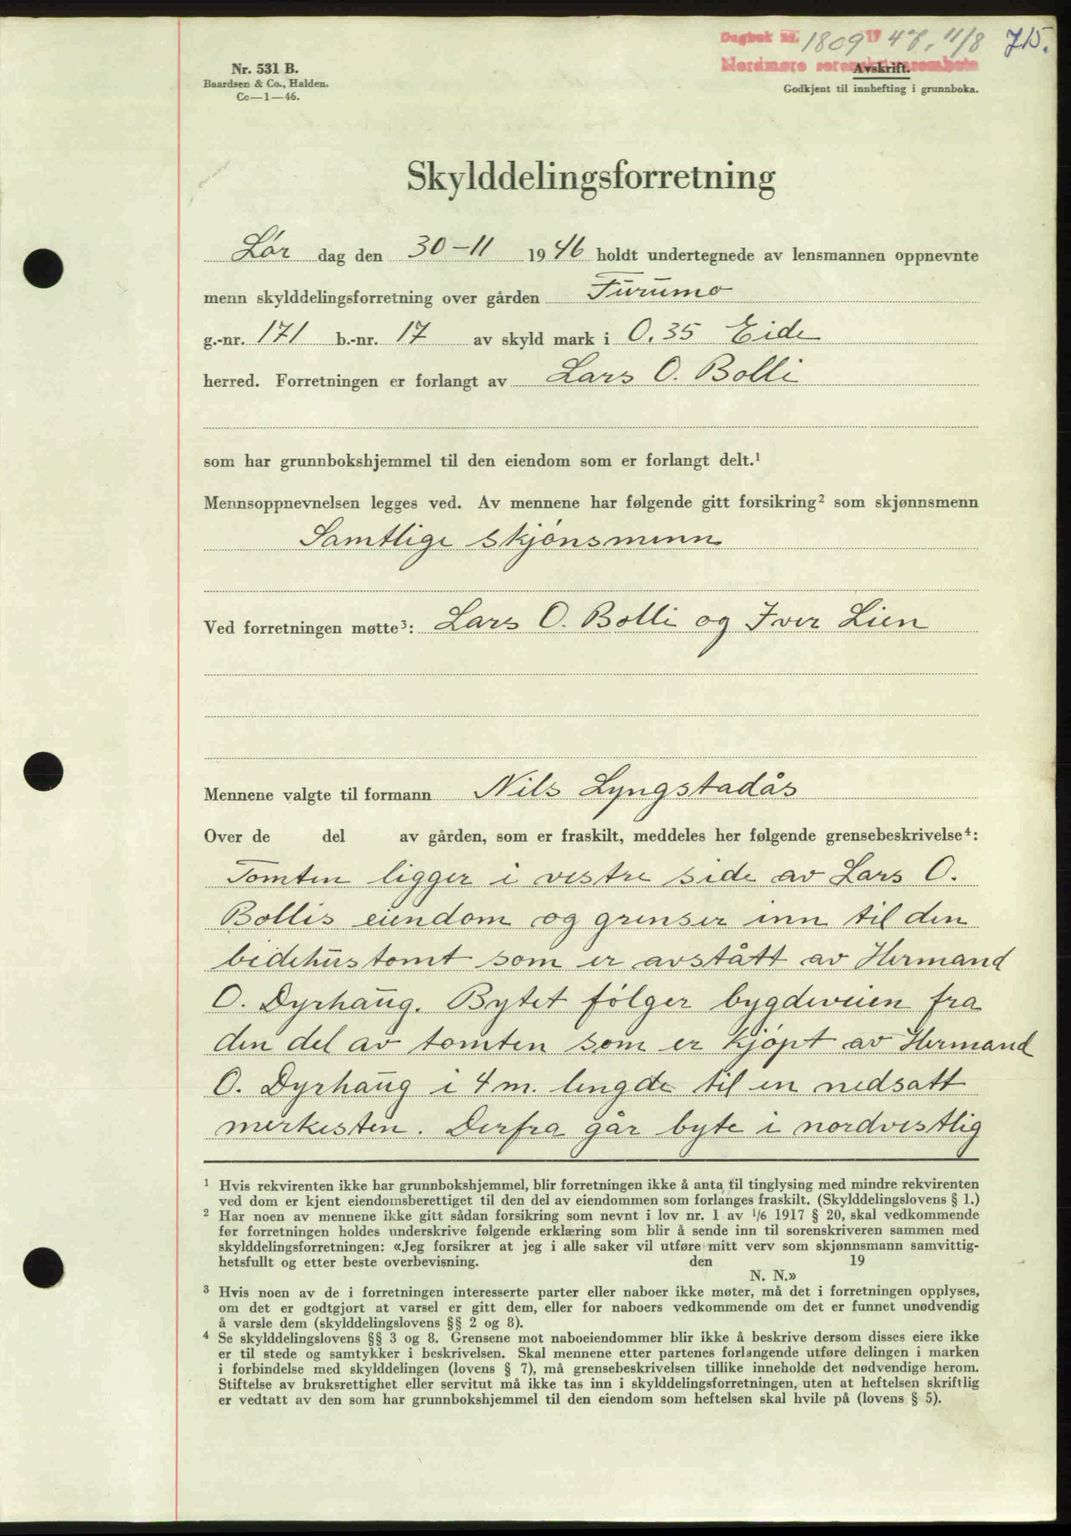 Dagbok nr. 1809 19 48, 11/8 715.
Nordmøre sorenskriverembete
Nr. 531 B.
Baardsen & Co., Halden.
Cc—1—46.
Avskrift.
Godkjent til innhefting i grunnboka.
Skylddelingsforretning
Lør dag den 30-11 1946 holdt undertegnede av lensmannen oppnevnte
menn skylddelingsforretning over gården Furumo
g.-nr. 171 b.-nr. 17 av skyld mark i 0.35 Eide
herred. Forretningen er forlangt av Lars O. Bolli
som har grunnbokshjemmel til den eiendom som er forlangt delt.¹
Mennsoppnevnelsen legges ved. Av mennene har følgende gitt forsikring² som skjønnsmenn
Samtlige skjønsmenn
Ved forretningen møtte³: Lars O. Bolli og Iver Lien
Mennene valgte til formann Nils Lyngstadås
Over de del av gården, som er fraskilt, meddeles her følgende grensebeskrivelse⁴:
Tomten ligger i vestre side av Lars O.
Bollis eiendom og grenser inn til den
bedehustomt som er avstått av Hermand
O. Dyrhaug. Bytet følger bygdeveien fra
den del av tomten som er kjøpt av Hermand
O. Dyrhaug i 4 m. lengde til en nedsatt
merkesten. Derfra går byte i nordvestlig
¹ Hvis rekvirenten ikke har grunnbokshjemmel, blir forretningen ikke å anta til tinglysing med mindre rekvirenten
ved dom er kjent eiendomsberettiget til den del av eiendommen som forlanges fraskilt. (Skylddelingslovens § 1.)
² Har noen av mennene ikke gitt sådan forsikring som nevnt i lov nr. 1 av 1/6 1917 § 20, skal vedkommende
før forretningen holdes underskrive følgende erklæring som blir å sende inn til sorenskriveren sammen med
skylddelingsforretningen: «Jeg forsikrer at jeg i alle saker vil utføre mitt verv som skjønnsmann samvittig-
hetsfullt og etter beste overbevisning. den 19
N. N.»
³ Hvis noen av de i forretningen interesserte parter eller naboer ikke møter, må det i forretningen opplyses,
om det er godtgjort at varsel er gitt dem, eller for naboers vedkommende om det er funnet unødvendig
å varsle dem (skylddelingslovens §§ 2 og 8).
⁴ Se skylddelingslovens §§ 3 og 8. Grensene mot naboeiendommer blir ikke å beskrive dersom disses eiere ikke
er til stede og samtykker i beskrivelsen. Skal mennene etter partenes forlangende utføre delingen i marken
i forbindelse med skylddelingen (lovens § 7), må grensebeskrivelsen tillike inneholde det nødvendige herom.
Stiftelse av bruksrettighet eller servitut må ikke tas inn i skylddelingsforretningen, uten at heftelsen skriftlig
er vedtatt av den som har grunnbokshjemmel til den eiendom som heftelsen skal hvile på (lovens § 5).